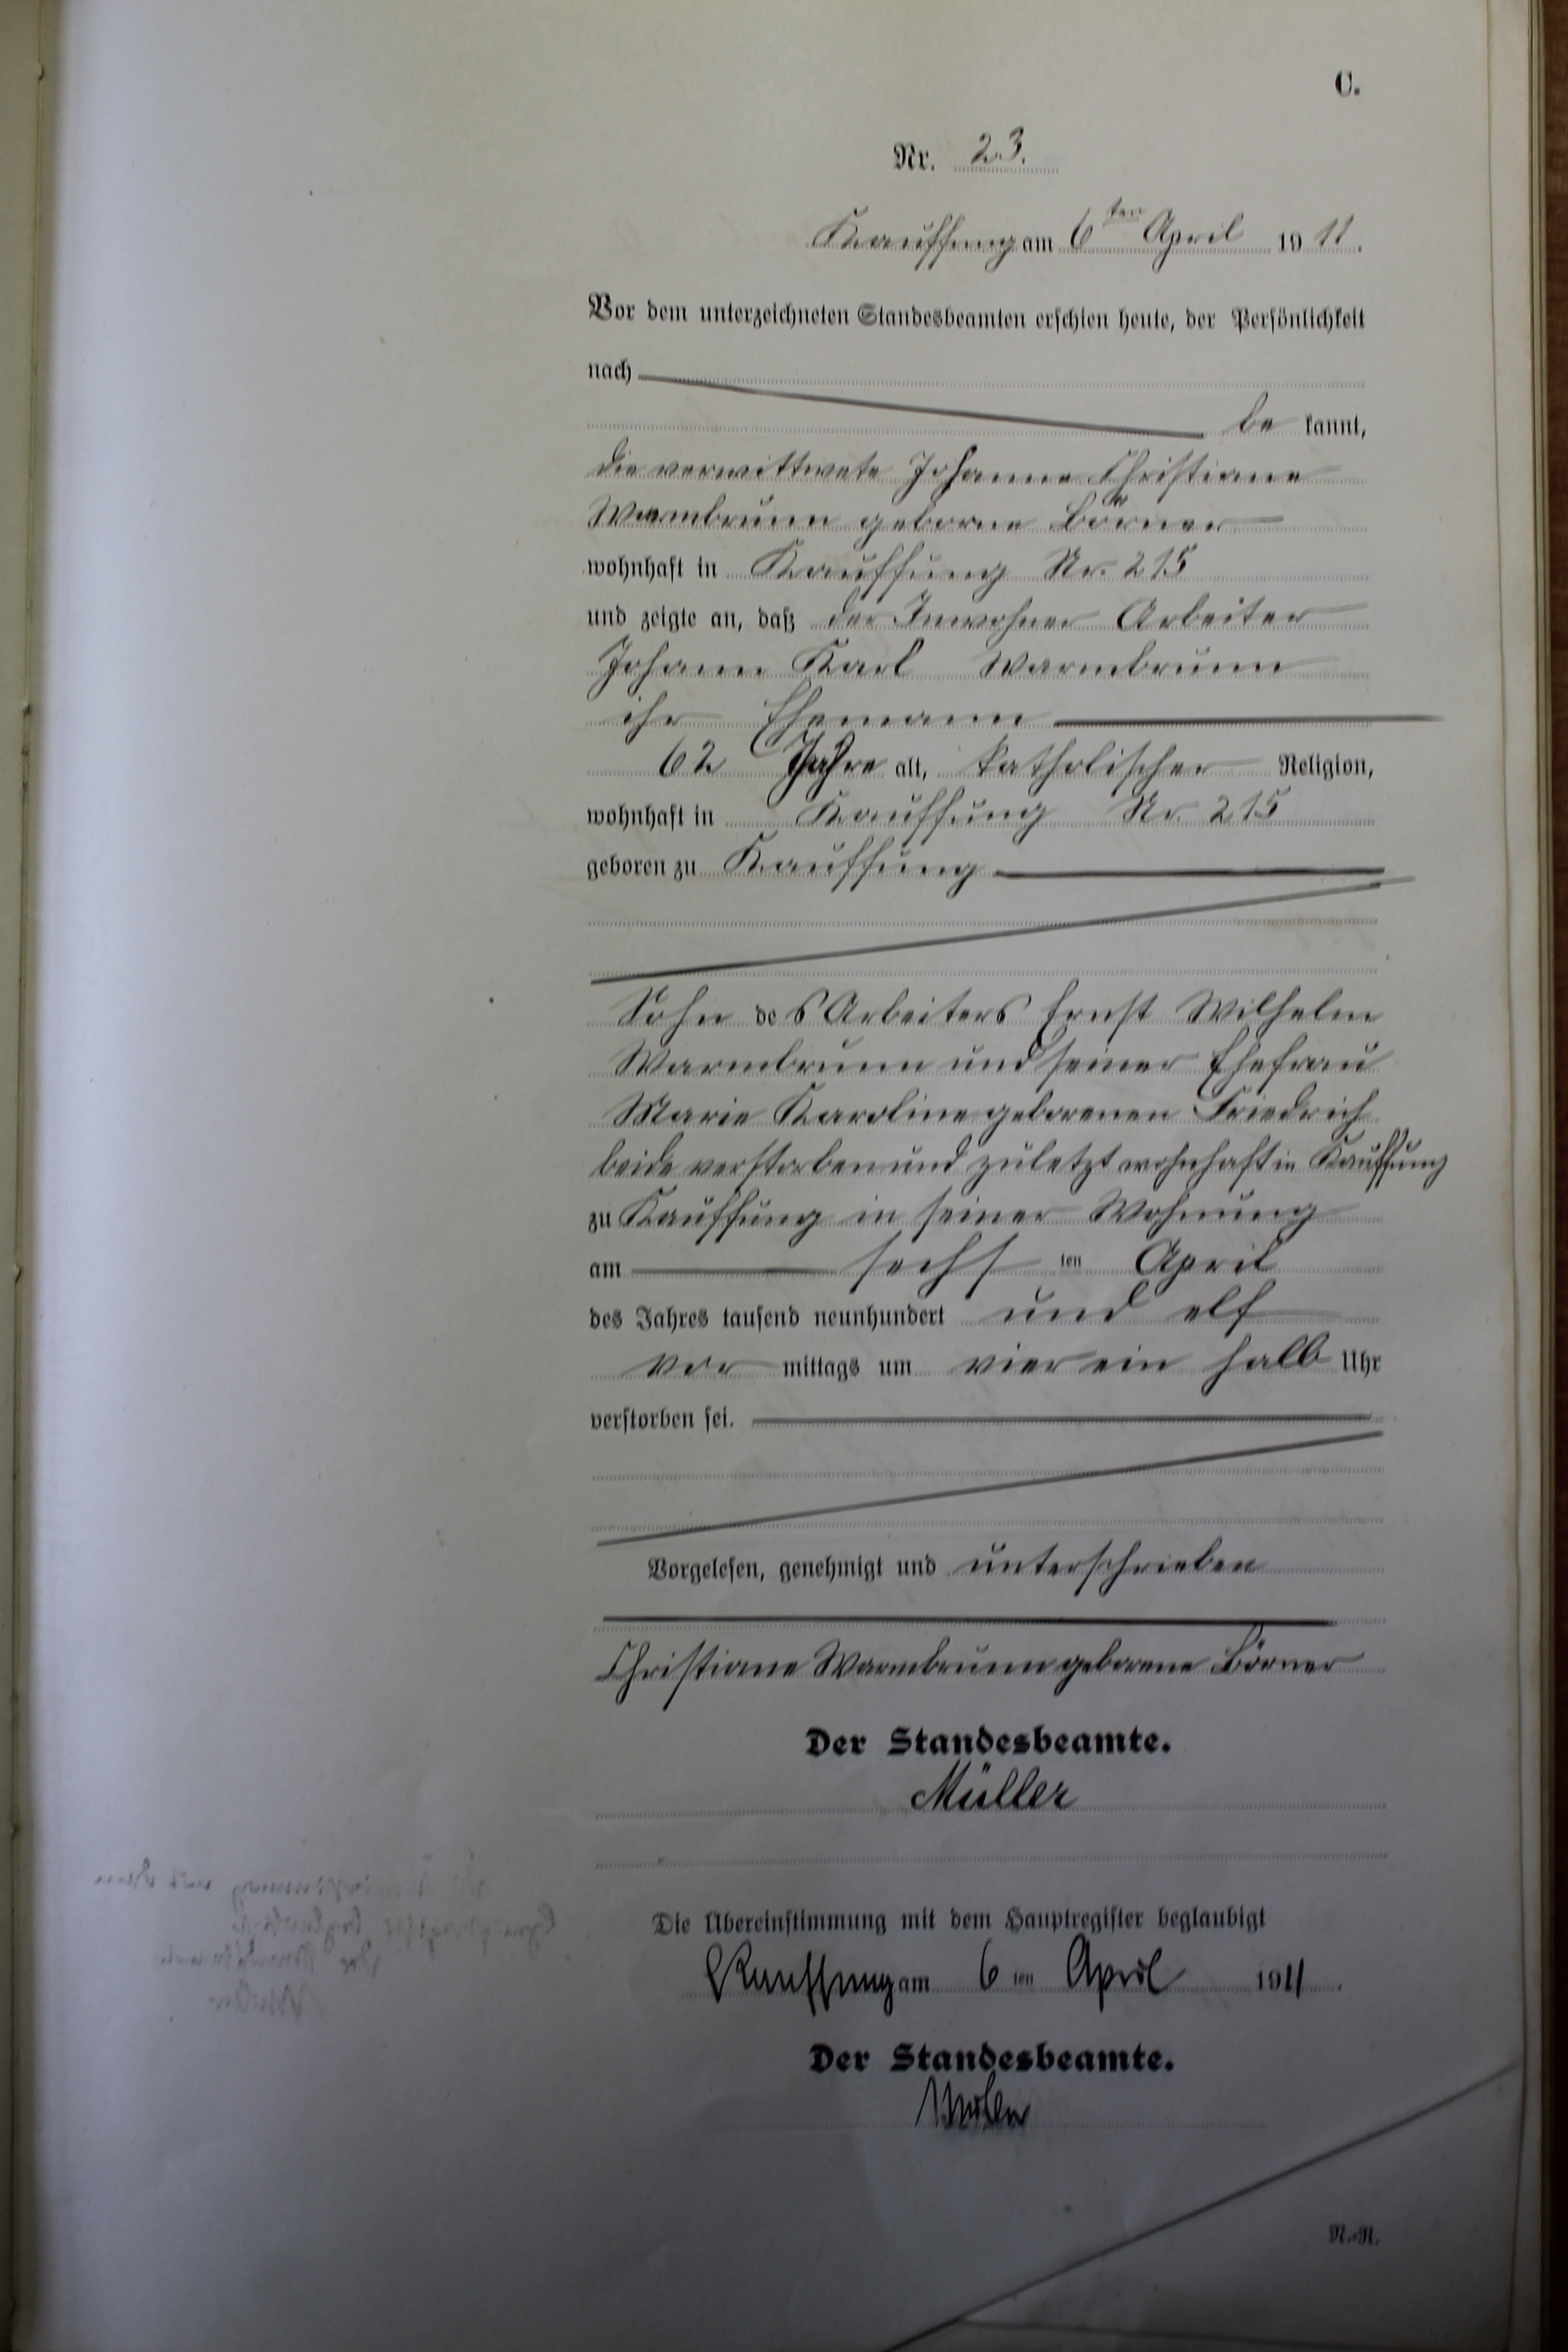 C.
Nr. 23.
Kauffung am 6ten April 1911.
Vor dem unterzeichneten Standesbeamten erschien heute, der Persönlichkeit
nach
be kannt,
die verwittwete Johanne Christiane
Warmbrunn geborne Börner
wohnhaft in Kauffung Nr. 215
und zeigte an, daß der Inwohner Arbeiter
Johann Karl Warmbrunn
ihr Ehemann
62 Jahre alt, katholischer Religion,
wohnhaft in Kauffung Nr. 215
geboren zu Kauffung
Sohn des Arbeiters Ernst Wilhelm
Warmbrunn und seiner Ehefrau
Marie Karoline geborenen Friedrich
beide verstorben und zuletzt wohnhaft in Kauffung
zu Kauffung in seiner Wohnung
am sechs ten April
des Jahres tausend neunhundert und elf
vor mittags um vier ein halb Uhr
verstorben sei.
Vorgelesen, genehmigt und unterschrieben
Christiane Warmbrunn geborene Börner
Der Standesbeamte.
Müller
Die Übereinstimmung mit dem Hauptregister beglaubigt
Kauffung am 6 ten April 1911.
Der Standesbeamte.
Müller
N.-N.